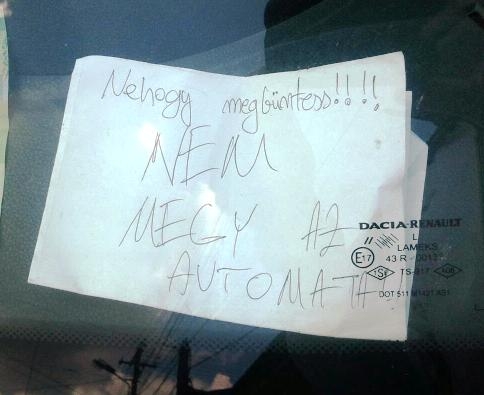 Nehogy megbüntess!!!!
NEM
MEGY AZ
AUTOMATA!!
DACIA-RENAULT
L
LAMEKS
E17 43 R - 0013
TS-917
DOT 511 M1421 AS1